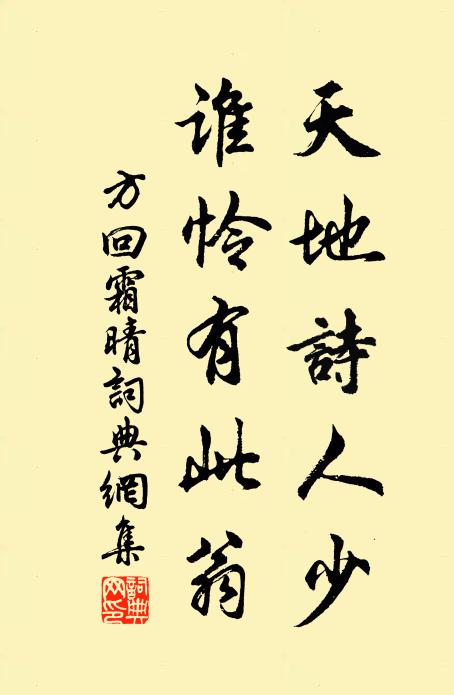 天地詩人少
誰怜有此翁
方回霜晴詞典網集
詞典網印